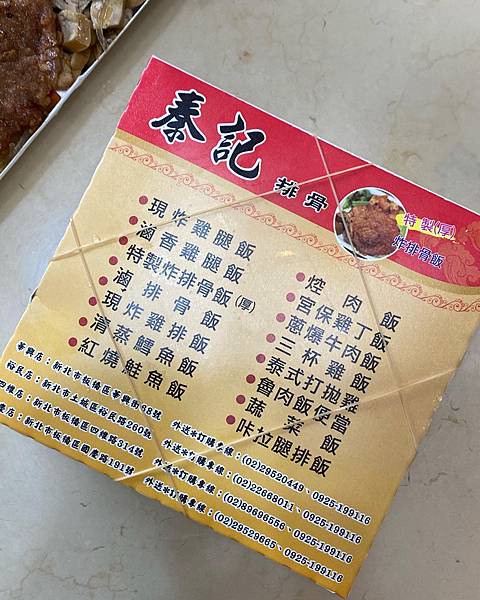 秦記 排骨
特製(厚)
炸排骨飯
現炸雞腿飯
滷香雞腿飯
特製炸排骨飯(厚)
滷排骨飯
現炸雞排飯
清蒸鱈魚飯
紅燒鮭魚飯
焢肉飯
宮保雞丁飯
蔥爆牛肉飯
三杯雞飯
泰式打拋雞
魯肉飯便當
蔬菜飯
咔拉腿排飯
華興店：新北市板橋區華興街48號
裕民店：新北市土城區裕民路260號
四維店：新北市板橋區四維路314號
慶店：新北市板橋區國慶路191號
外送來訂購專線：(02)29520449、0925-199116
外送來訂購專線：(02)22668011、0925-199116
外送來訂購專線：(02)89696556、0925-199116
外送來訂購專線：(02)29529665、0925-199116